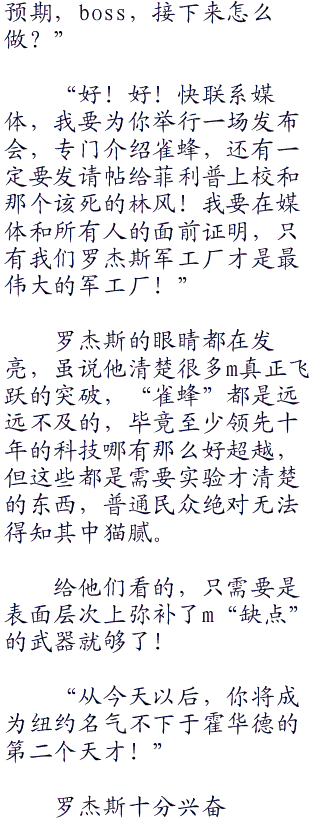 预期，boss，接下来怎么
做？”
“好！好！快联系媒
体，我要为你举行一场发布
会，专门介绍雀蜂，还有一
定要发请帖给菲利普上校和
那个该死的林风！我要在媒
体和所有人的面前证明，只
有我们罗杰斯军工厂才是最
伟大的军工厂！”
罗杰斯的眼睛都在发
亮，虽说他清楚很多m真正飞
跃的突破，“雀蜂”都是远
远不及的，毕竟至少领先十
年的科技哪有那么好超越，
但这些都是需要实验才清楚
的东西，普通民众绝对无法
得知其中猫腻。
给他们看的，只需要是
表面层次上弥补了m“缺点”
的武器就够了！
“从今天以后，你将成
为纽约名气不下于霍华德的
第二个天才！”
罗杰斯十分兴奋